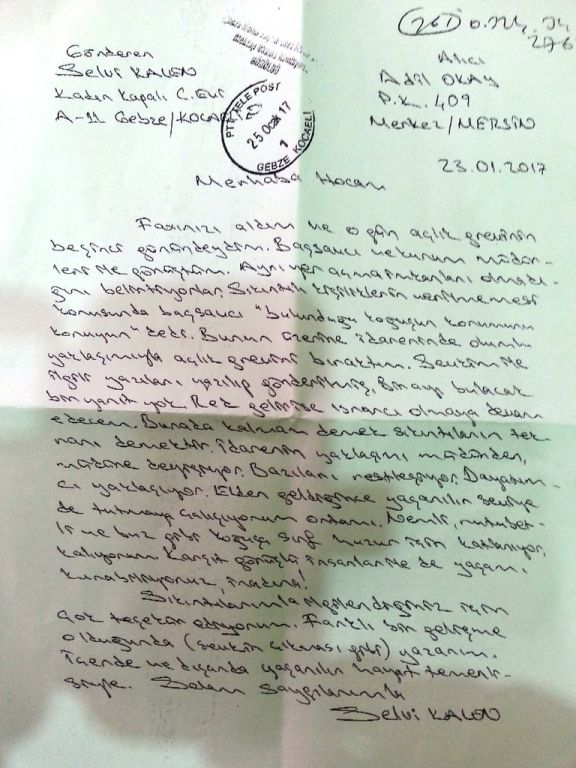 (261) 0.324.
276
Gönderen
Selvi KALEN
Kadın Kapalı C. Evi
A-11 Gebze/KOCAELİ
PTT TELE POST
25 Ocak 17
1
GEBZE KOCAELİ
Alıcı
Adil OKAY
P.K. 409
Merkez/MERSİN
23.01.2017
Merhaba Hocam
Faxınızı aldım ve o gün açlık grevinin
beşinci günündeydim. Başsavcı ve kurum müdür-
leri ile görüştüm. Ayrı yer açma imkanları olmadı-
ğını belirtiyorlar. Sıkıntılı kişiliklerin verilmemesi
konusunda başsavcı "bulunduğu koğuşun konumunu
koruyun" dedi. Bunun üzerine idareninde olumlu
yaklaşımıyla açlık grevini bıraktım. Sevkim ile
ilgili yazıları yazılıp gönderilmiş. Bir ayı bulacak
bir yanıt yok. Red gelirse ısrarcı olmaya devam
edecem. Burada kalmam demek sıkıntıların tek-
rarı demektir. İdarenin yaklaşımı müdürden,
müdüre değişiyor. Bazıları restleşiyor. Dayatım-
cı yaklaşıyor. Elden geldiğince yaşanılır seviye
de tutmaya çalışıyorum ortamı. Nemli, rutubet-
li ve buz gibi koğuşa sırf huzur için katlanıyor,
kalıyorum. Karşıt görüşlü insanlar ile de yaşam
kurabiliyoruz, inadına!
Sıkıntılarımla ilgilendiğiniz için
çok teşekkür ediyorum. Farklı bir gelişme
olduğunda (sevkin çıkması gibi) yazarım.
İçerde ve dışarıda yaşanılır hayat temenni-
siyle. Selam Saygılarımla
Selvi KALEN